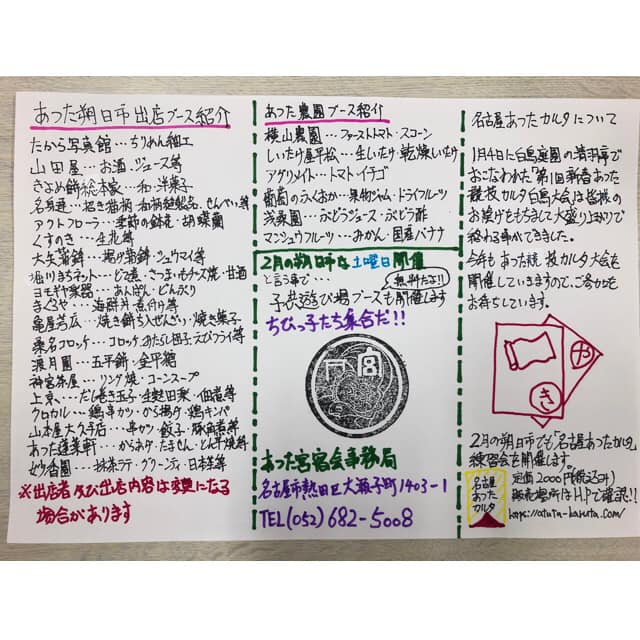 あつた朔日市出店ブース紹介
たから写真館…ちりめん細工
山田屋…お酒・ジュース等
きよめ餅総本家…和・洋菓子
アクトフローラ…季節の鉢花・胡蝶蘭
くすのき…生花等
大矢蒲鉾…揚げ蒲鉾・シュウマイ等
ヨモギヤ楽器…あんぱん・どんぐり
まぐろや…海鮮丼・煮付け等
亀屋芳広…焼き餅ぜんざい・焼き菓子
桑名コロッケ…コロッケ・みたらし団子・えびフライ等
渡月園…五平餅・金平糖
神宮茶屋…リング焼・コーンスープ
上京…だし巻き玉子・生麩田楽・佃煮等
クロカル…鶏串カツ・から揚げ・鶏キンパ
山本屋大久手店…串カツ・餃子・豚角煮等
あつた蓬莱軒…からあげ・たません・とん平焼等
妙香園…抹茶ラテ・グリーンティ・日本茶等
※出店者及び出店内容は変更になる
場合があります
あつた農園ブース紹介
横山農園…ファーストトマト・スコーン
しいたけ屋平松…生しいたけ・乾燥しいたけ
アグリメイト…トマト・イチゴ
葡萄のふくおか…果物ジャム・ドライフルーツ
浅粂園…ぶどうジュース・ぶどう酢
マンジュウフルーツ…みかん・国産バナナ
2月の朔日市は土曜日開催
と言う事で…
無料だよ!!
子供遊び場ブースも開催します
ちびっ子たち集合だ!!
宮
あつた宮宿会事務局
名古屋市熱田区大瀬子町1403-1
TEL(052)682-5008
名古屋あつたカルタについて
1月4日に白鳥庭園の清羽亭で
おこなわれた「第1回新春あつた
競技カルタ白鳥大会」は皆様の
お陰げをもちまして大盛り上がりで
終わる事ができました。
今年もあつた競技カルタ大会を
開催していきますので、ご参加を
お待ちしています。
き
2月の朔日市でも「名古屋あつたカルタ」
練習会を開催します。
名古屋
あつた
カルタ
定価2000円(税込み)
販売場所はHPで確認!!
https://atuta-karuta.com/